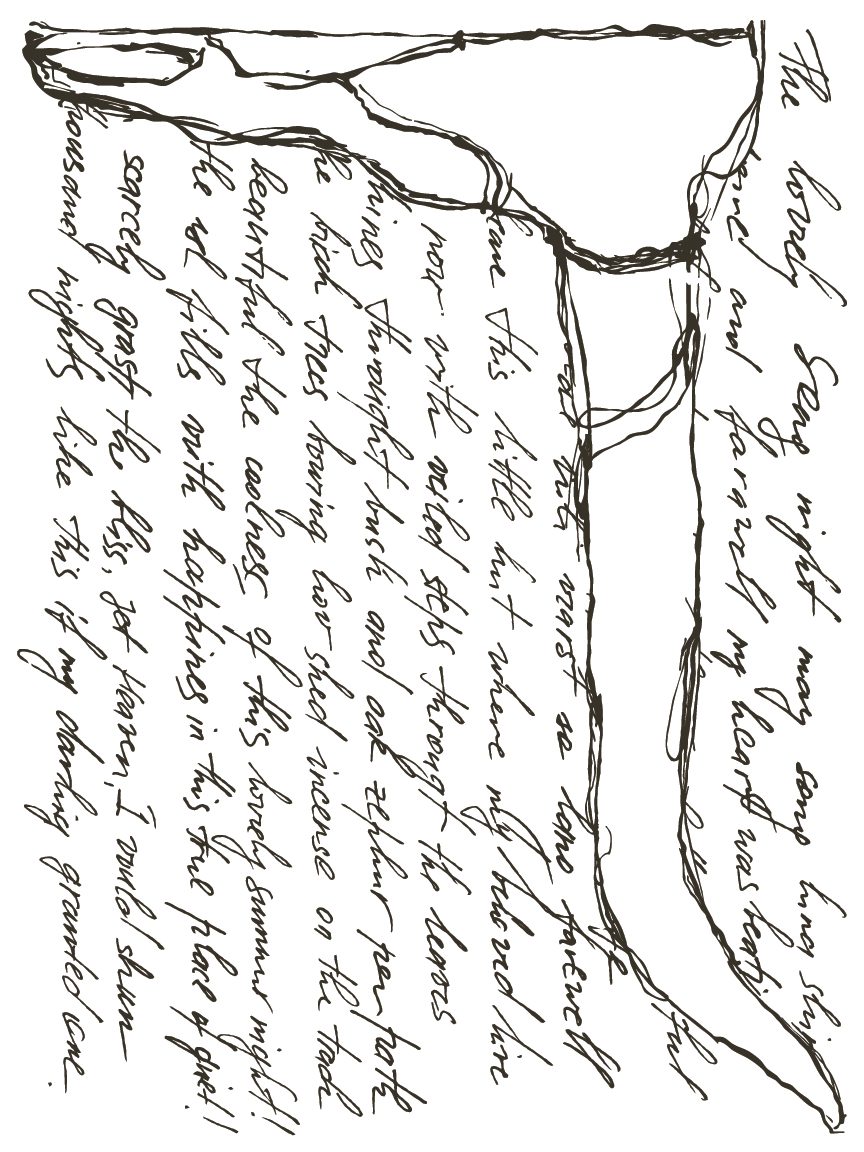 The lovely Song night may song
and farwell my heart was beat
but worst so long farewell
this little hut where my beloved live
now with veiled steps througt the leavs
hings throught bush and oak zephur per path
he birch trees bowing low shed incense on the track
beautiful the coolness of this lovely summer night!
the sol fills with happines in this true place of quiet!
scarcely grast the bliss, yet Heaven, I would shun
housand nights like this if my darling granted one.